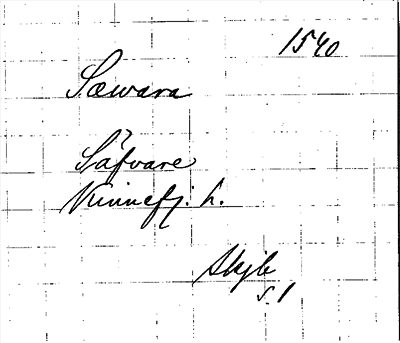 1540
Sæwara
Säfvare
Kinnefj. h.
Skjb
s. 1